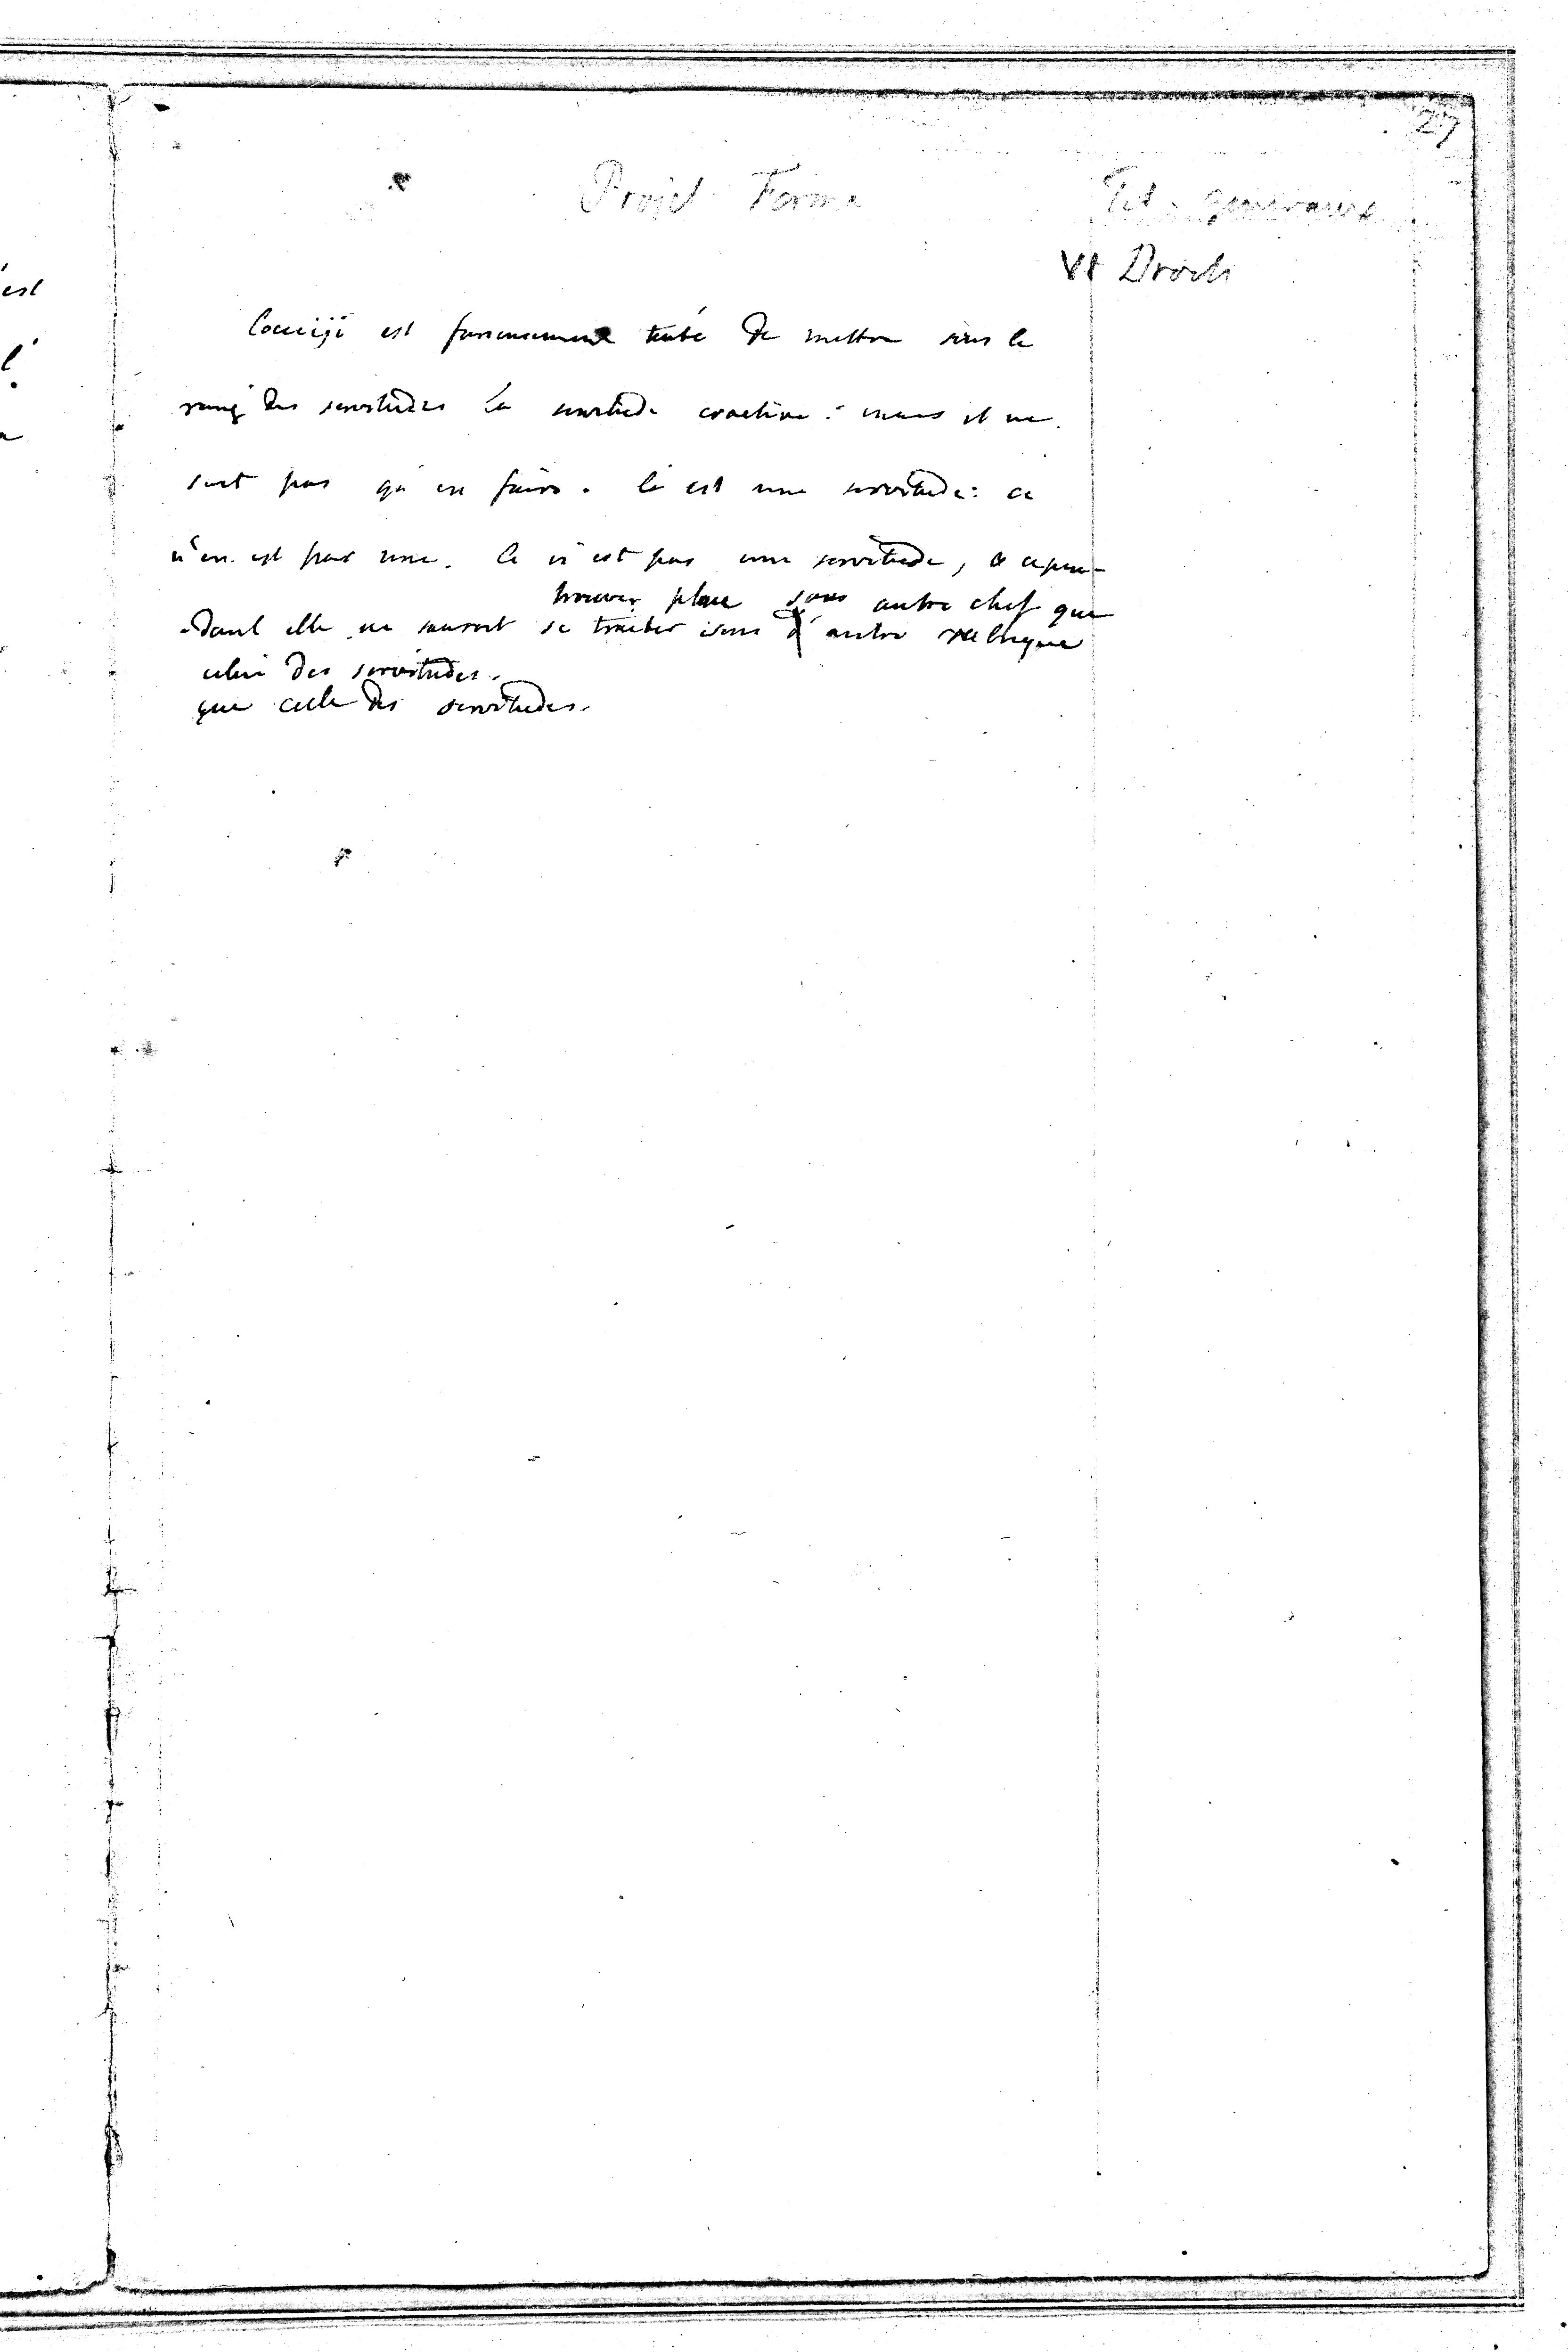 27
Projet Forme
Tit. generaux
VI Droits
Cocceiji est furieusement tenté de mettre sous le
rang des servitudes la servitude coactive: mais il ne
sait pas qu'en faire. C'est une servitude: ce
n'en est pas une. Ce n'est pas une servitude, & cepen-
trouver place sous autre chef que
dant elle ne sauroit se traiter sous d'autre rubrique
celui des servitudes.
que celle des servitudes.